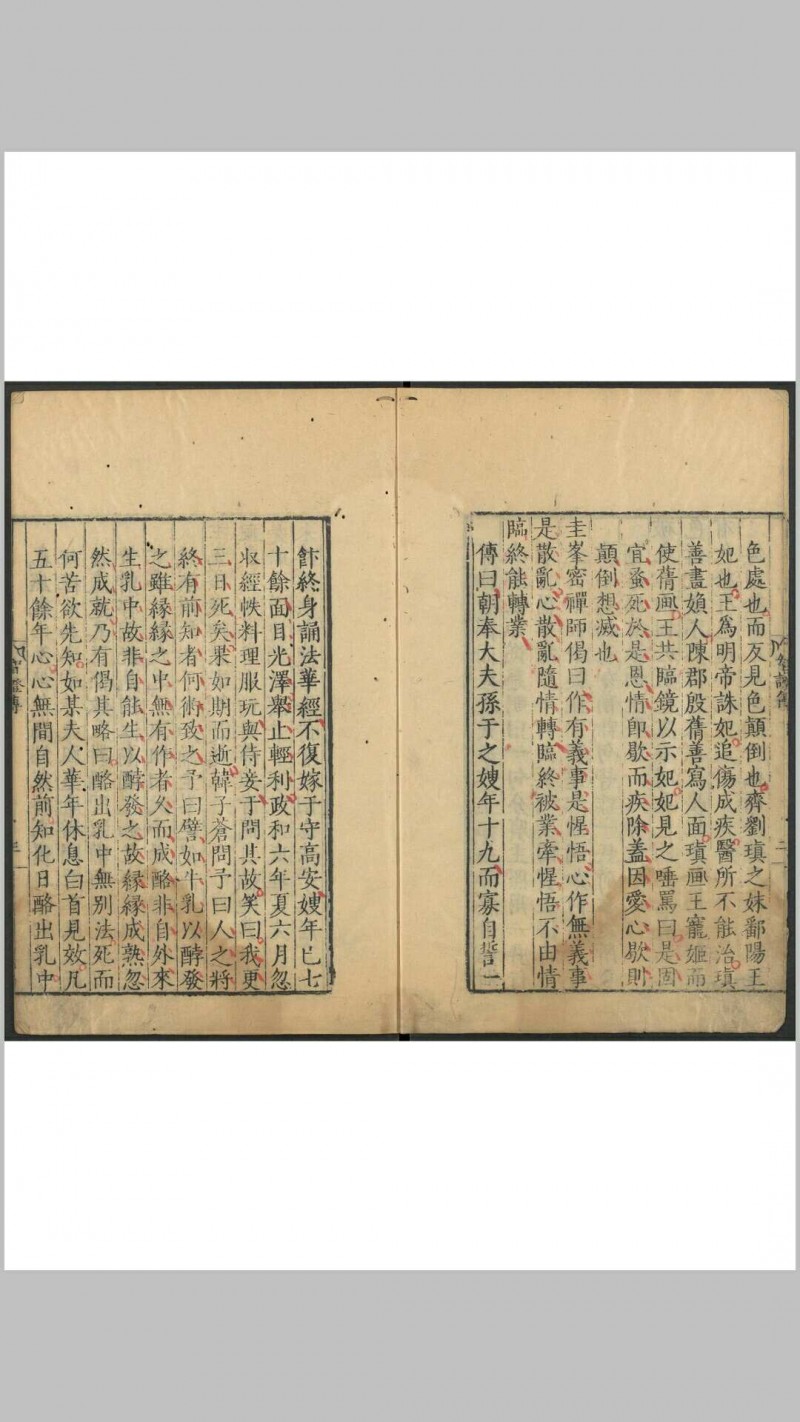 色處也而反見色顛倒也齊劉瑱之妹鄱陽王
妃也王爲明帝誅妃追傷成疾醫所不能治瑱
善畫婦人陳郡殷蒨善寫人面瑱画王寵姬而
使蒨画王共臨鏡以示妃妃見之唾罵曰是固
宜蚤死於是恩情即歇而疾除蓋因愛心歇則
顛倒想滅也
圭峯密禪師偈曰作有義事是惺悟心作無義事
是散亂心散亂隨情轉臨終被業牽惺悟不由情
臨終能轉業
傳曰朝奉大夫孫于之嫂年十九而寡自誓一
飰終身誦法華經不復嫁于守高安嫂年已七
十餘面目光澤舉止輕利政和六年夏六月忽
収經帙料理服玩與侍妾于問其故笑曰我更
三日死矣果如期而逝韓子蒼問予曰人之將
終有前知者何術致之予曰譬如牛乳以酵發
之雖緣緣之中無有作者久而成酪非自外來
生乳中故非自能生以酵發之故緣緣成熟忽
然成就乃有偈其略曰酪出乳中無别法死而
何苦欲先知如某夫人華年休息白首見效凡
五十餘年心心無間自然前知化日酪出乳中